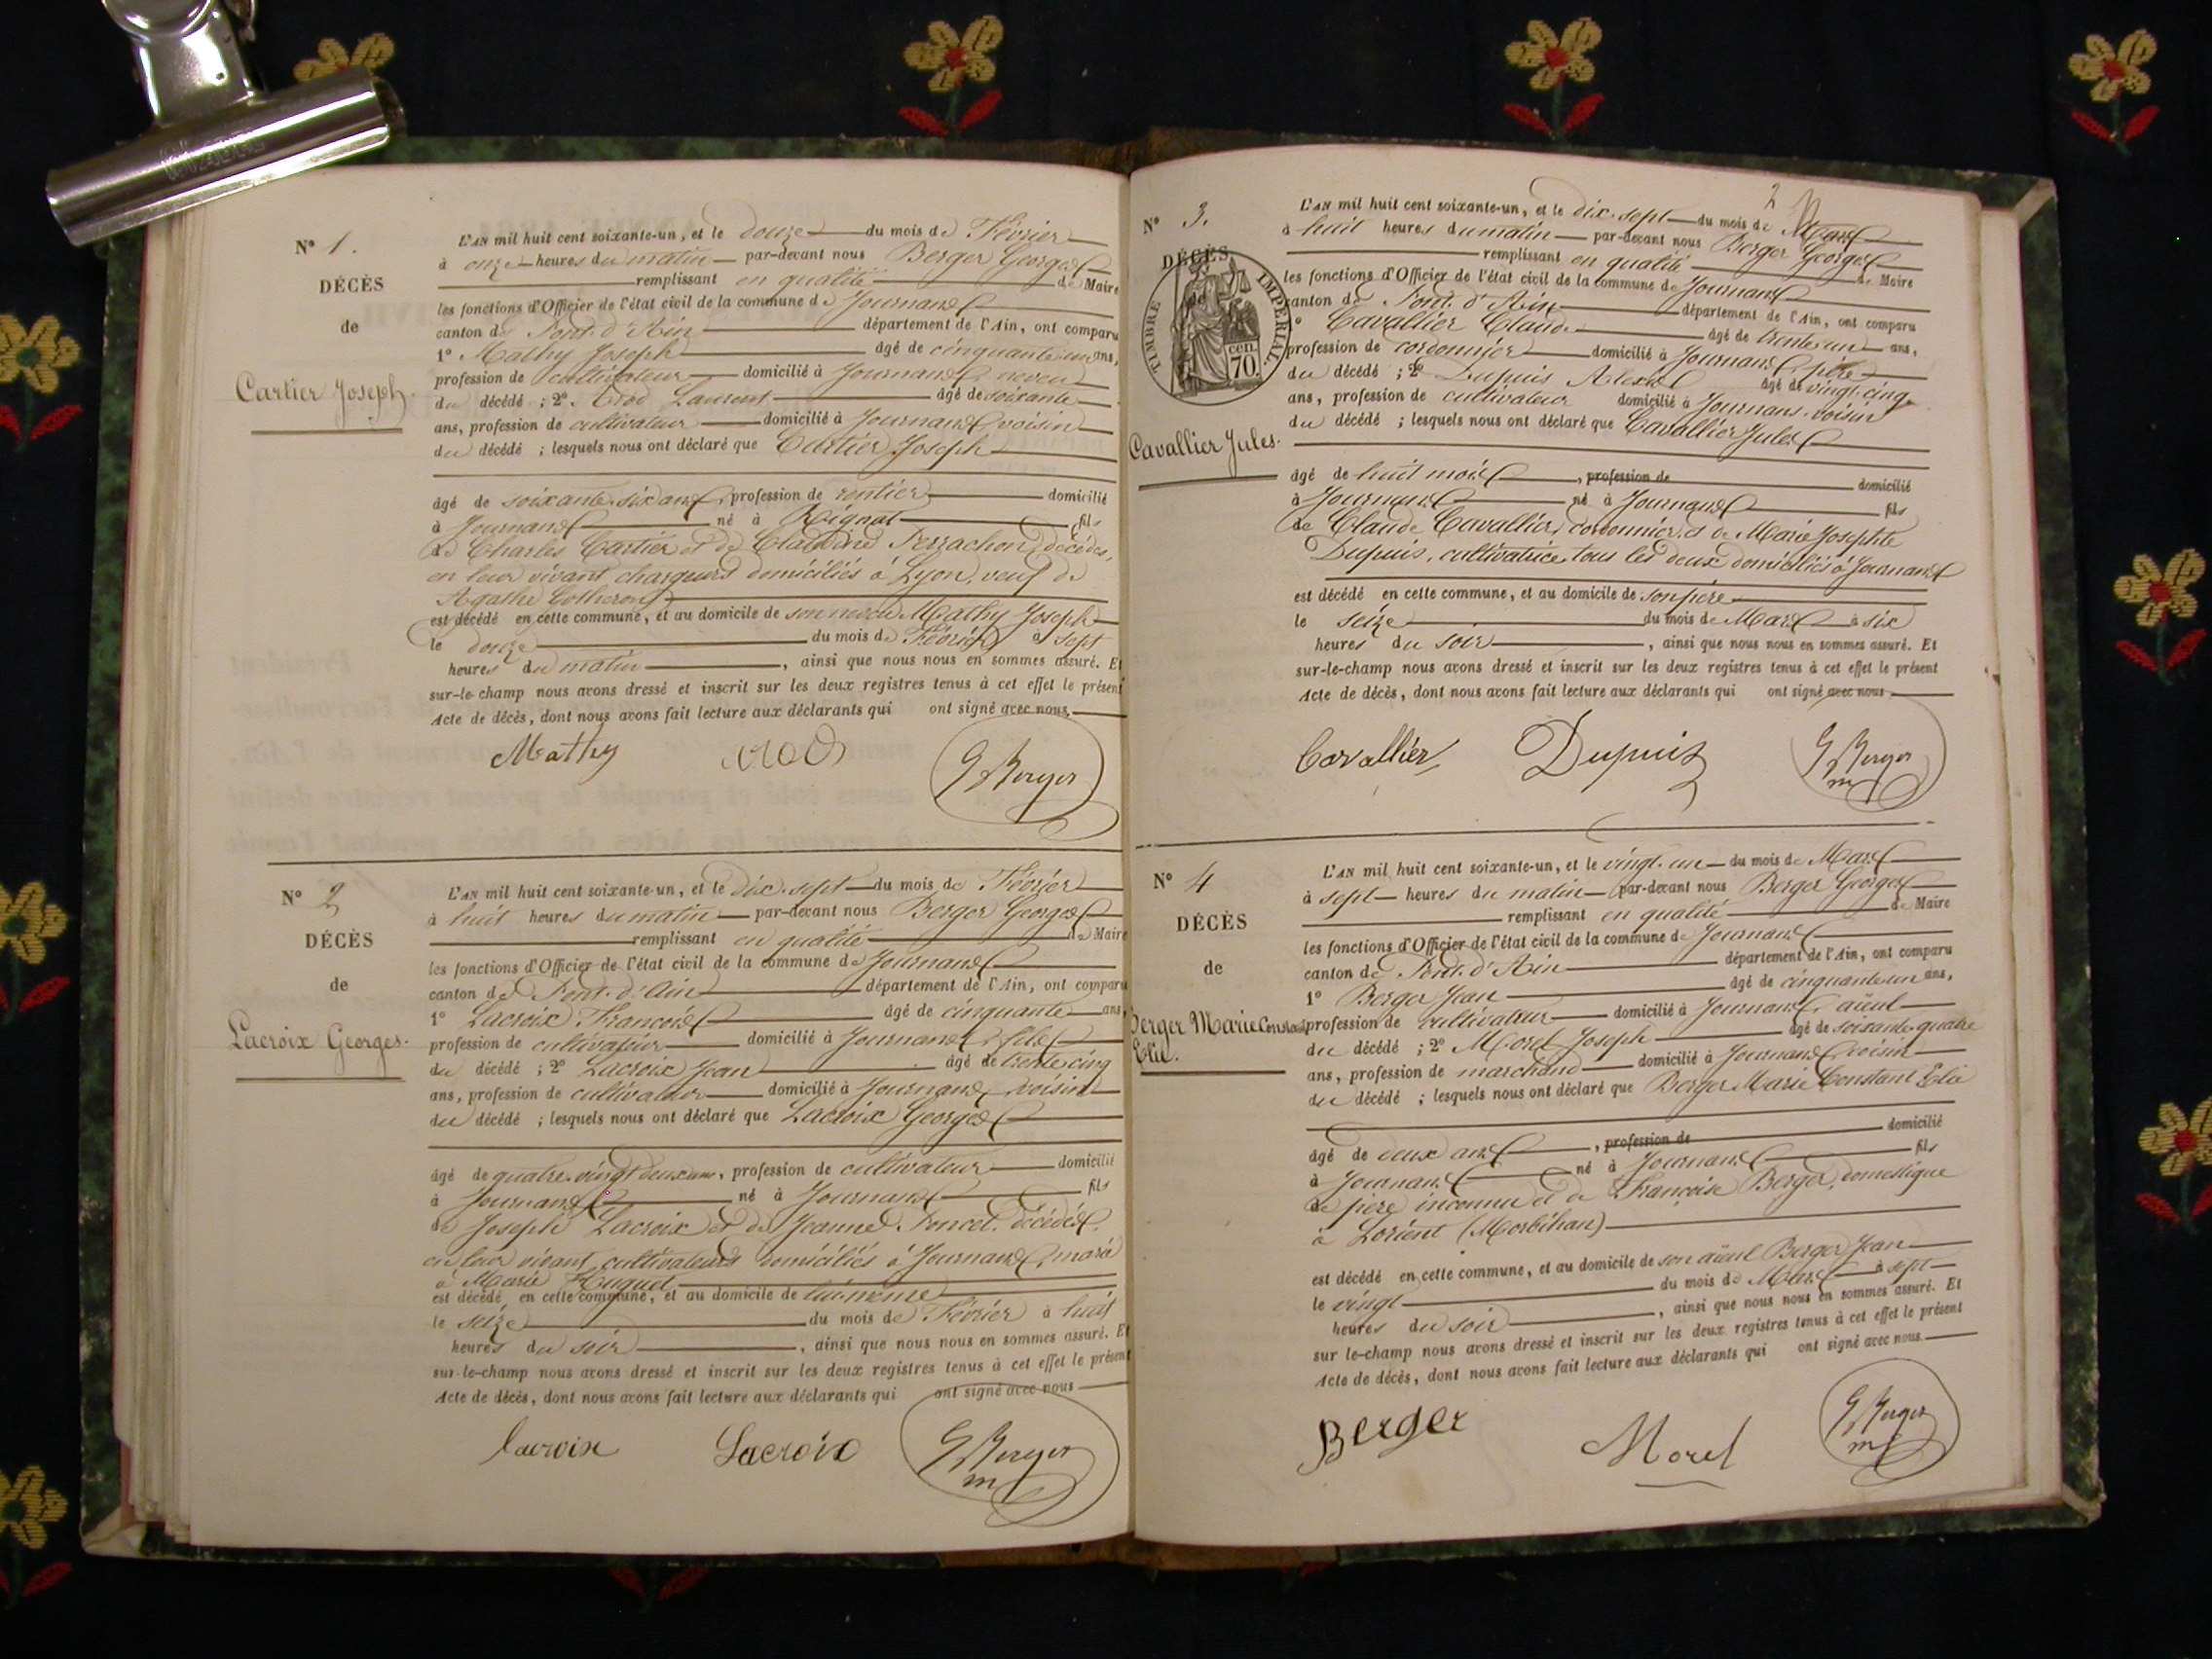 N° 1.
DÉCÈS
de
Cartier Joseph.
L'AN mil huit cent soixante-un, et le douze du mois de Février
à onze heures du matin par-devant nous Berger Georges
remplissant en qualité de Maire
les fonctions d'Officier de l'état civil de la commune de Journans
canton de Pont-d'Ain département de l'Ain, ont comparu
1° Mathy Joseph âgé de cinquante un ans,
profession de cultivateur domicilié à Journans neveu
du décédé ; 2° Laurent âgé de soixante
ans, profession de cultivateur domicilié à Journans voisin
du décédé ; lesquels nous ont déclaré que Cartier Joseph
âgé de soixante-six ans, profession de rentier domicilié
à Journans né à Rignat fils
de Charles Cartier et de Claudine Perrachon, décédés,
en leur vivant chargeurs domiciliés à Lyon, veuf de
Agathe
est décédé en cette commune, et au domicile de son neveu Mathy Joseph
le douze du mois de Février à sept
heures du matin , ainsi que nous nous en sommes assuré. Et
sur-le-champ nous avons dressé et inscrit sur les deux registres tenus à cet effet le présent
Acte de décès, dont nous avons fait lecture aux déclarants qui ont signé avec nous.
Mathy G Berger
N° 2
DÉCÈS
de
Lacroix Georges.
L'AN mil huit cent soixante-un, et le dix-sept du mois de Février
à huit heures du matin par-devant nous Berger Georges
remplissant en qualité de Maire
les fonctions d'Officier de l'état civil de la commune de Journans
canton de Pont-d'Ain département de l'Ain, ont comparu
1° Lacroix François âgé de cinquante ans,
profession de cultivateur domicilié à Journans, fils
du décédé ; 2° Lacroix Jean âgé de trente cinq
ans, profession de cultivateur domicilié à Journans voisin
du décédé ; lesquels nous ont déclaré que Lacroix Georges
âgé de quatre-vingt deux ans, profession de cultivateur domicilié
à Journans né à Journans fils
de Joseph Lacroix et de Jeanne Poncet, décédés,
en leur vivant cultivateurs domiciliés à Journans, marié
à Marie Huguet
est décédé en cette commune, et au domicile de lui-même
le seize du mois de Février à huit
heures du soir , ainsi que nous nous en sommes assuré. Et
sur-le-champ nous avons dressé et inscrit sur les deux registres tenus à cet effet le présent
Acte de décès, dont nous avons fait lecture aux déclarants qui ont signé avec nous
Lacroix Lacroix G Berger
m
2
N° 3.
DÉCÈS
de
TIMBRE IMPÉRIAL.
cen.
70.
Cavallier Jules.
L'AN mil huit cent soixante-un, et le dix-sept du mois de Mars
à huit heures du matin par-devant nous Berger Georges
remplissant en qualité de Maire
les fonctions d'Officier de l'état civil de la commune de Journans
canton de Pont-d'Ain département de l'Ain, ont comparu
1° Cavallier Claude âgé de trente-un ans,
profession de cordonnier domicilié à Journans, père
du décédé ; 2° Dupuis Alexis âgé de vingt-cinq
ans, profession de cultivateur domicilié à Journans voisin
du décédé ; lesquels nous ont déclaré que Cavallier Jules
âgé de huit mois , profession de domicilié
à Journans né à Journans fils
de Claude Cavallier, cordonnier, et de Marie Josephte
Dupuis, cultivatrice, tous les deux domiciliés à Journans
est décédé en cette commune, et au domicile de son père
le seize du mois de Mars à six
heures du soir , ainsi que nous nous en sommes assuré. Et
sur-le-champ nous avons dressé et inscrit sur les deux registres tenus à cet effet le présent
Acte de décès, dont nous avons fait lecture aux déclarants qui ont signé avec nous
Cavallier Dupuis G Berger
m
N° 4
DÉCÈS
de
Berger Marie Constant
Elie.
L'AN mil huit cent soixante-un, et le vingt-un du mois de Mars
à sept heures du matin par-devant nous Berger Georges
remplissant en qualité de Maire
les fonctions d'Officier de l'état civil de la commune de Journans
canton de Pont-d'Ain département de l'Ain, ont comparu
1° Berger Jean âgé de cinquante un ans,
profession de cultivateur domicilié à Journans, aïeul
du décédé ; 2° Morel Joseph âgé de soixante-quatre
ans, profession de marchand domicilié à Journans, voisin
du décédé ; lesquels nous ont déclaré que Berger Marie Constant Elie
âgé de deux ans , profession de domicilié
à Journans né à Journans fils
de père inconnu et de Françoise Berger, domestique
à Lorient (Morbihan)
est décédé en cette commune, et au domicile de son aïeul Berger Jean
le vingt du mois de Mars à sept
heures du soir , ainsi que nous nous en sommes assuré. Et
sur le-champ nous avons dressé et inscrit sur les deux registres tenus à cet effet le présent
Acte de décès, dont nous avons fait lecture aux déclarants qui ont signé avec nous.
Berger Morel G Berger
m